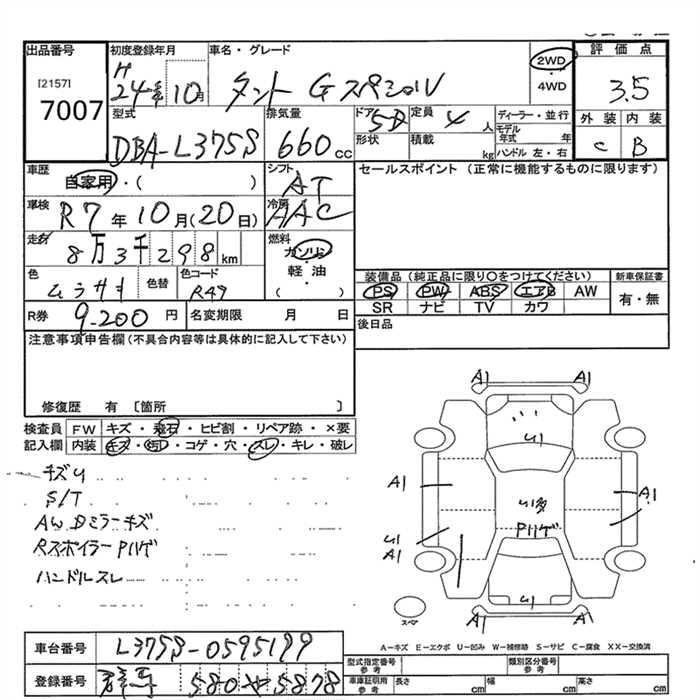 出品番号
[2157]
7007
初度登録年月
H
24年10月
車名・グレード
タント Gスペシャル
2WD
・
4WD
評価点
3.5
外装 内装
C B
型式
DBA-L375S
排気量
660cc
ドア 5D
形状
定員 4人
積載 kg
ディーラー・並行
モデル年式 年
ハンドル 左・右
車歴
自家用・( )
シフト
AT
車検
R7年10月(20日)
冷房
AAC
走行
8万3千298km
燃料
ガソリン
・
軽油
( )
色
ムラサキ
色替
色コード
R49
R券 9-200円
名変期限 月 日
セールスポイント (正常に機能するものに限ります)
装備品(純正品に限り○をつけてください)
PS PW ABS エアB AW
SR ナビ TV カワ
新車保証書
有・無
後日品
注意事項申告欄(不具合内容等は具体的に記入して下さい)
修復歴 有 〔箇所 〕
検査員記入欄
FW キズ・飛石・ヒビ割・リペア跡・×要
内装 キズ・汚レ・コゲ・穴・スレ・キレ・破レ
キズU
S/T
AW Dミラーキズ
RスポイラーPハゲ
ハンドルスレ
A1 A1
U1
A1 A1
U1多
Pハゲ
U1
A1
U1
A1 A1
スペア
A-キズ E-エクボ U-凹み W-補修跡 S-サビ C-腐食 XX-交換済
車台番号 L375S-0595199
登録番号 群馬 580 や 5878
型式指定番号 参考
類別区分番号 参考
車庫証明用 参考
長さ cm 幅 cm 高さ cm